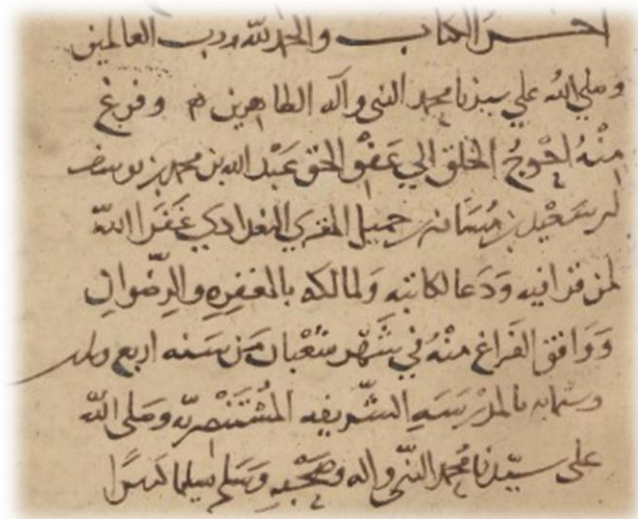 آخر الكتاب والحمد لله رب العالمين
وصلى الله علي سيدنا محمد النبي وآله الطاهرين وفرغ
منه احوج الخلق الي عفو الحق عبد الله بن محمد بن يوسف
بن سعيد بن مسافر بن جميل المقري البغدادي غفر الله
لمن قرا فيه ودعا لكاتبه ولمالكه بالمغفره والرضوان
ووافق الفراغ منه في شهر شعبان من سنه اربع
وستمايه بالمدرسه الشريفه المستنصريه وصلى الله
على سيدنا محمد النبي واله وصحبه وسلم تسليما كثيرا